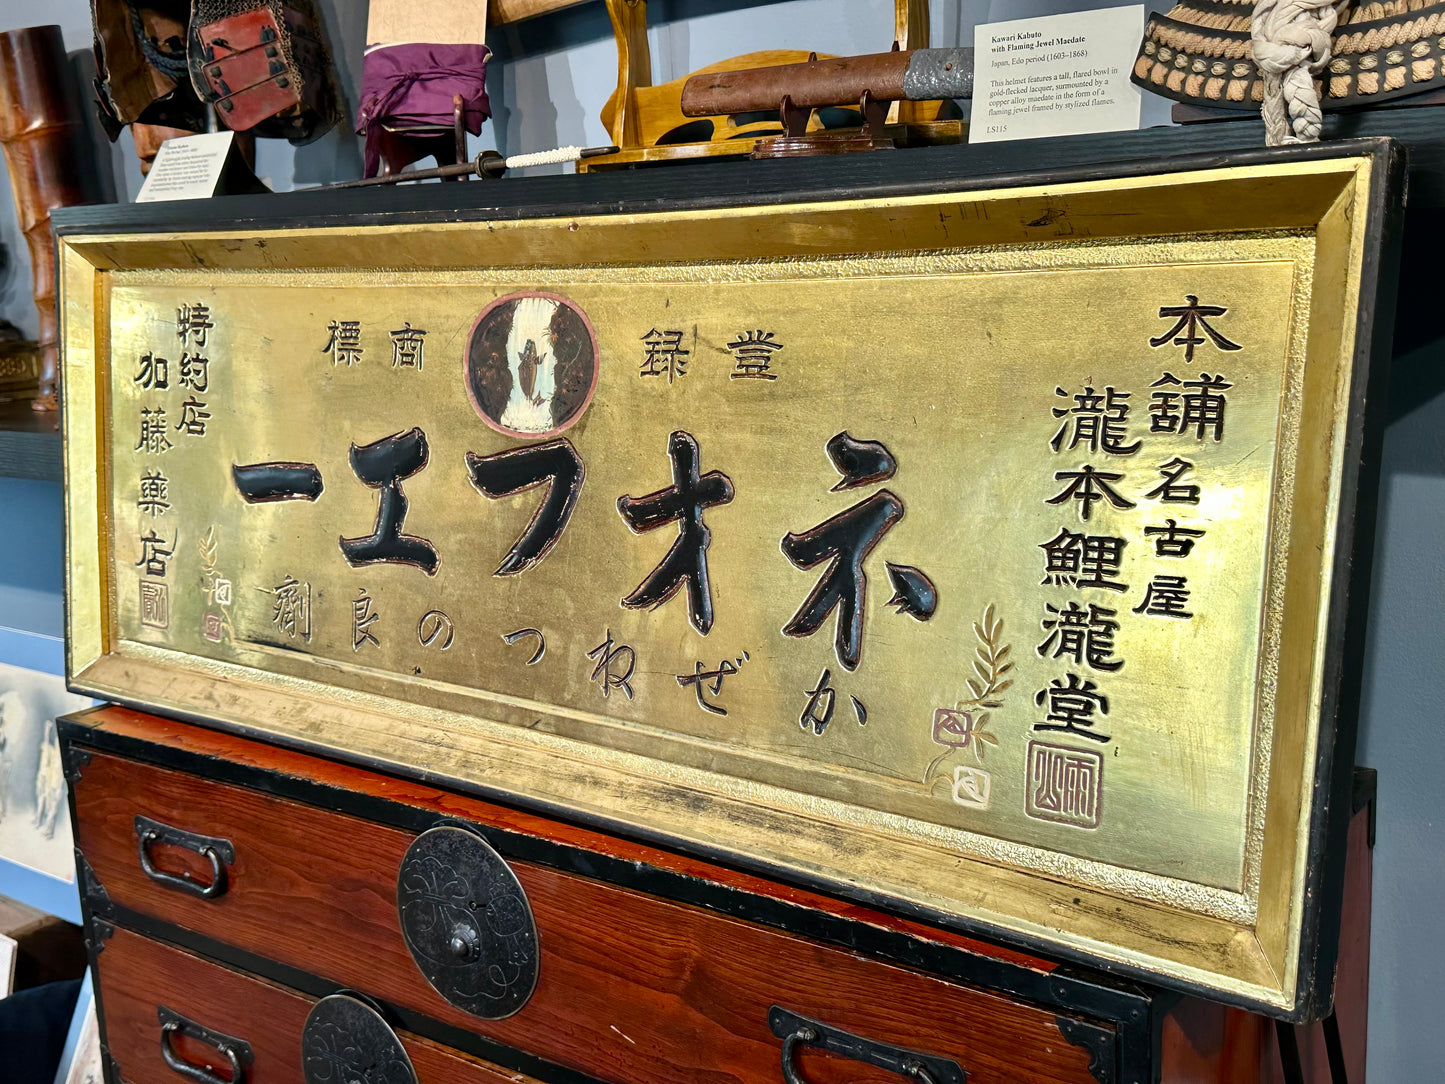 Kawari Kabuto
with Flaming Jewel Maedate
Japan, Edo period (1603–1868)
This helmet features a tall, flared bowl in
gold-flecked lacquer, surmounted by a
copper alloy maedate in the form of a
flaming jewel framed by stylized flames.
LS115
本舗
名古屋
瀧本鯉瀧堂
登録
商標
ネオフエー
かぜねつの良劑
特約店
加藤藥店